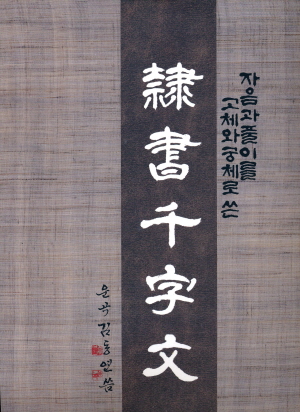 자음과 풀이를
고체와 궁체로 쓴
隸書千字文
운곡 김동연 씀